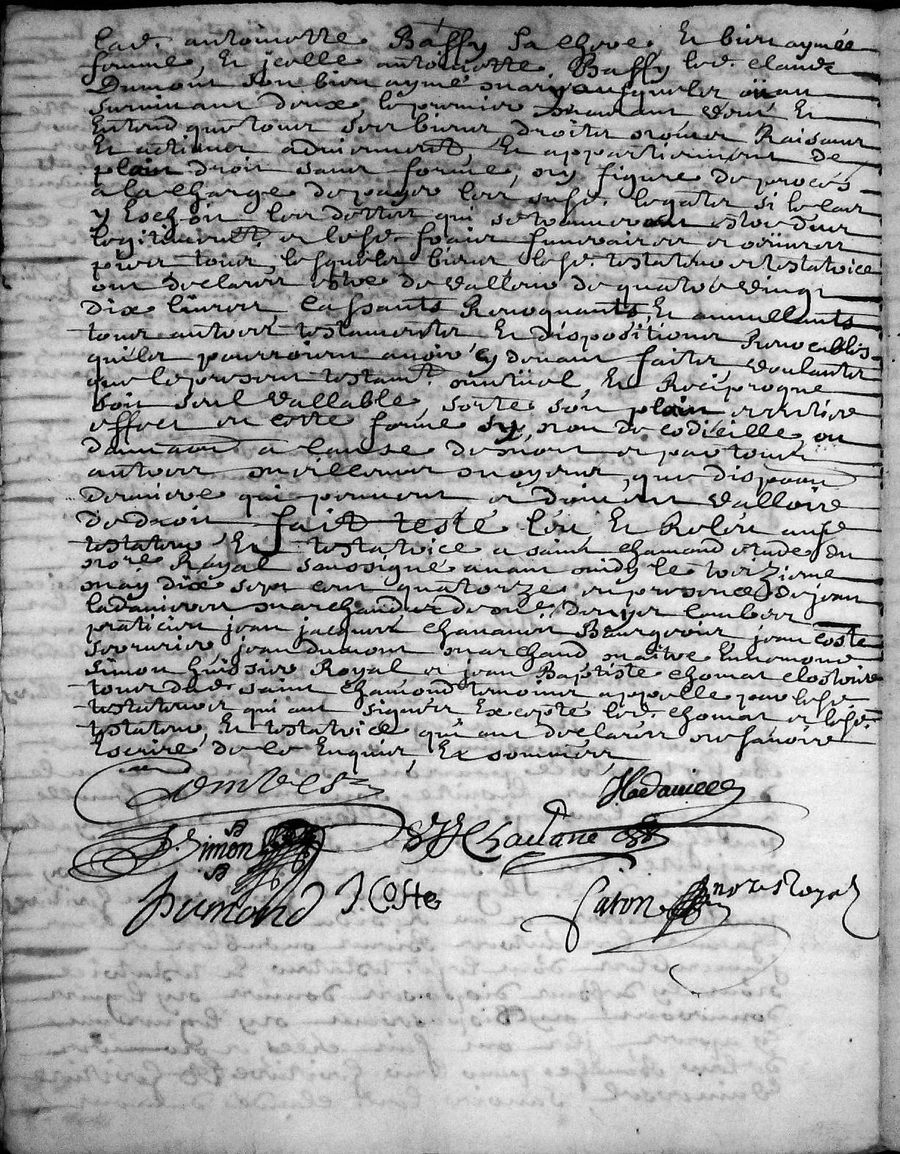 lad. antoinette Baffy sa chere, Et bien aymée
femme, Et jcelle antoinette Baffy led. claude
Dumont son bien aymé mary ausquels ou au
survivant deux le premier mourant veut Et
Entend que tous ses biens droits noms Raisons
Et actions adviennent Et appartiennent de
plain droit sans forme, ny figure de procès
a la charge de payer les susd. legats si le cas
y Eschoit les dettes qui se trouveront estre dues
legitimement et lesd. fraix funeraires et oeuvres
pies tous lesquels biens lesd. testateur et testatrice
ont declarés estre de valleur de quatre vingt
dix livres, Cassants Revoquants, Et annullants
tous autres testaments Et dispositions Revocables
quils pourroient avoir cy devant faites, voulants
que le present testamt. mutuel, Et Reciproque
soit seul vallable, sorte son plain et entier
effect en cette forme sy, non de codicille, ou
donnaon a cause de mort et par tous
autres meilleurs moyens, que dispoon
derniere qui peuvent et doivent valloir
de droit fait testé leu Et Releu ausd.
testateur Et testatrice a saint chamond etude du
nore. Royal soussigné avant midy le treizieme
may dix sept cent quatorze en presence de jean
ladaviere marchand de
praticien jean jacques Bourgeois jean coste
serrurier jean dumont marchand maitre Ennemond
simon huissier Royal et jean Baptiste chomat clostrier
tous dud. saint chamond temoins appellé par lesd.
testateurs qui ont signés Excepté led. chomat et lesd.
testateur, Et testatrice qui ont declarés ne sçavoir
Escrire de ce Enquis, Et sommés
Combes
Simon
Dumond J Coste
nore Royal